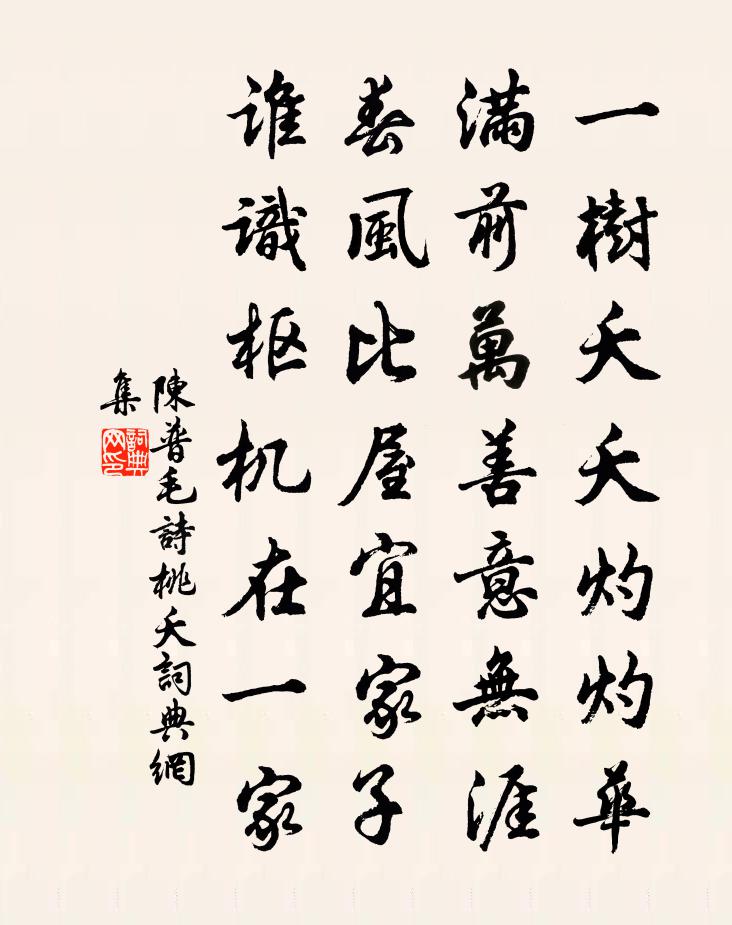 一樹夭夭灼灼華
滿前萬善意無涯
春風比屋宜家子
誰識枢机在一家
陳普毛詩桃夭詞典網
集
詞典
网印